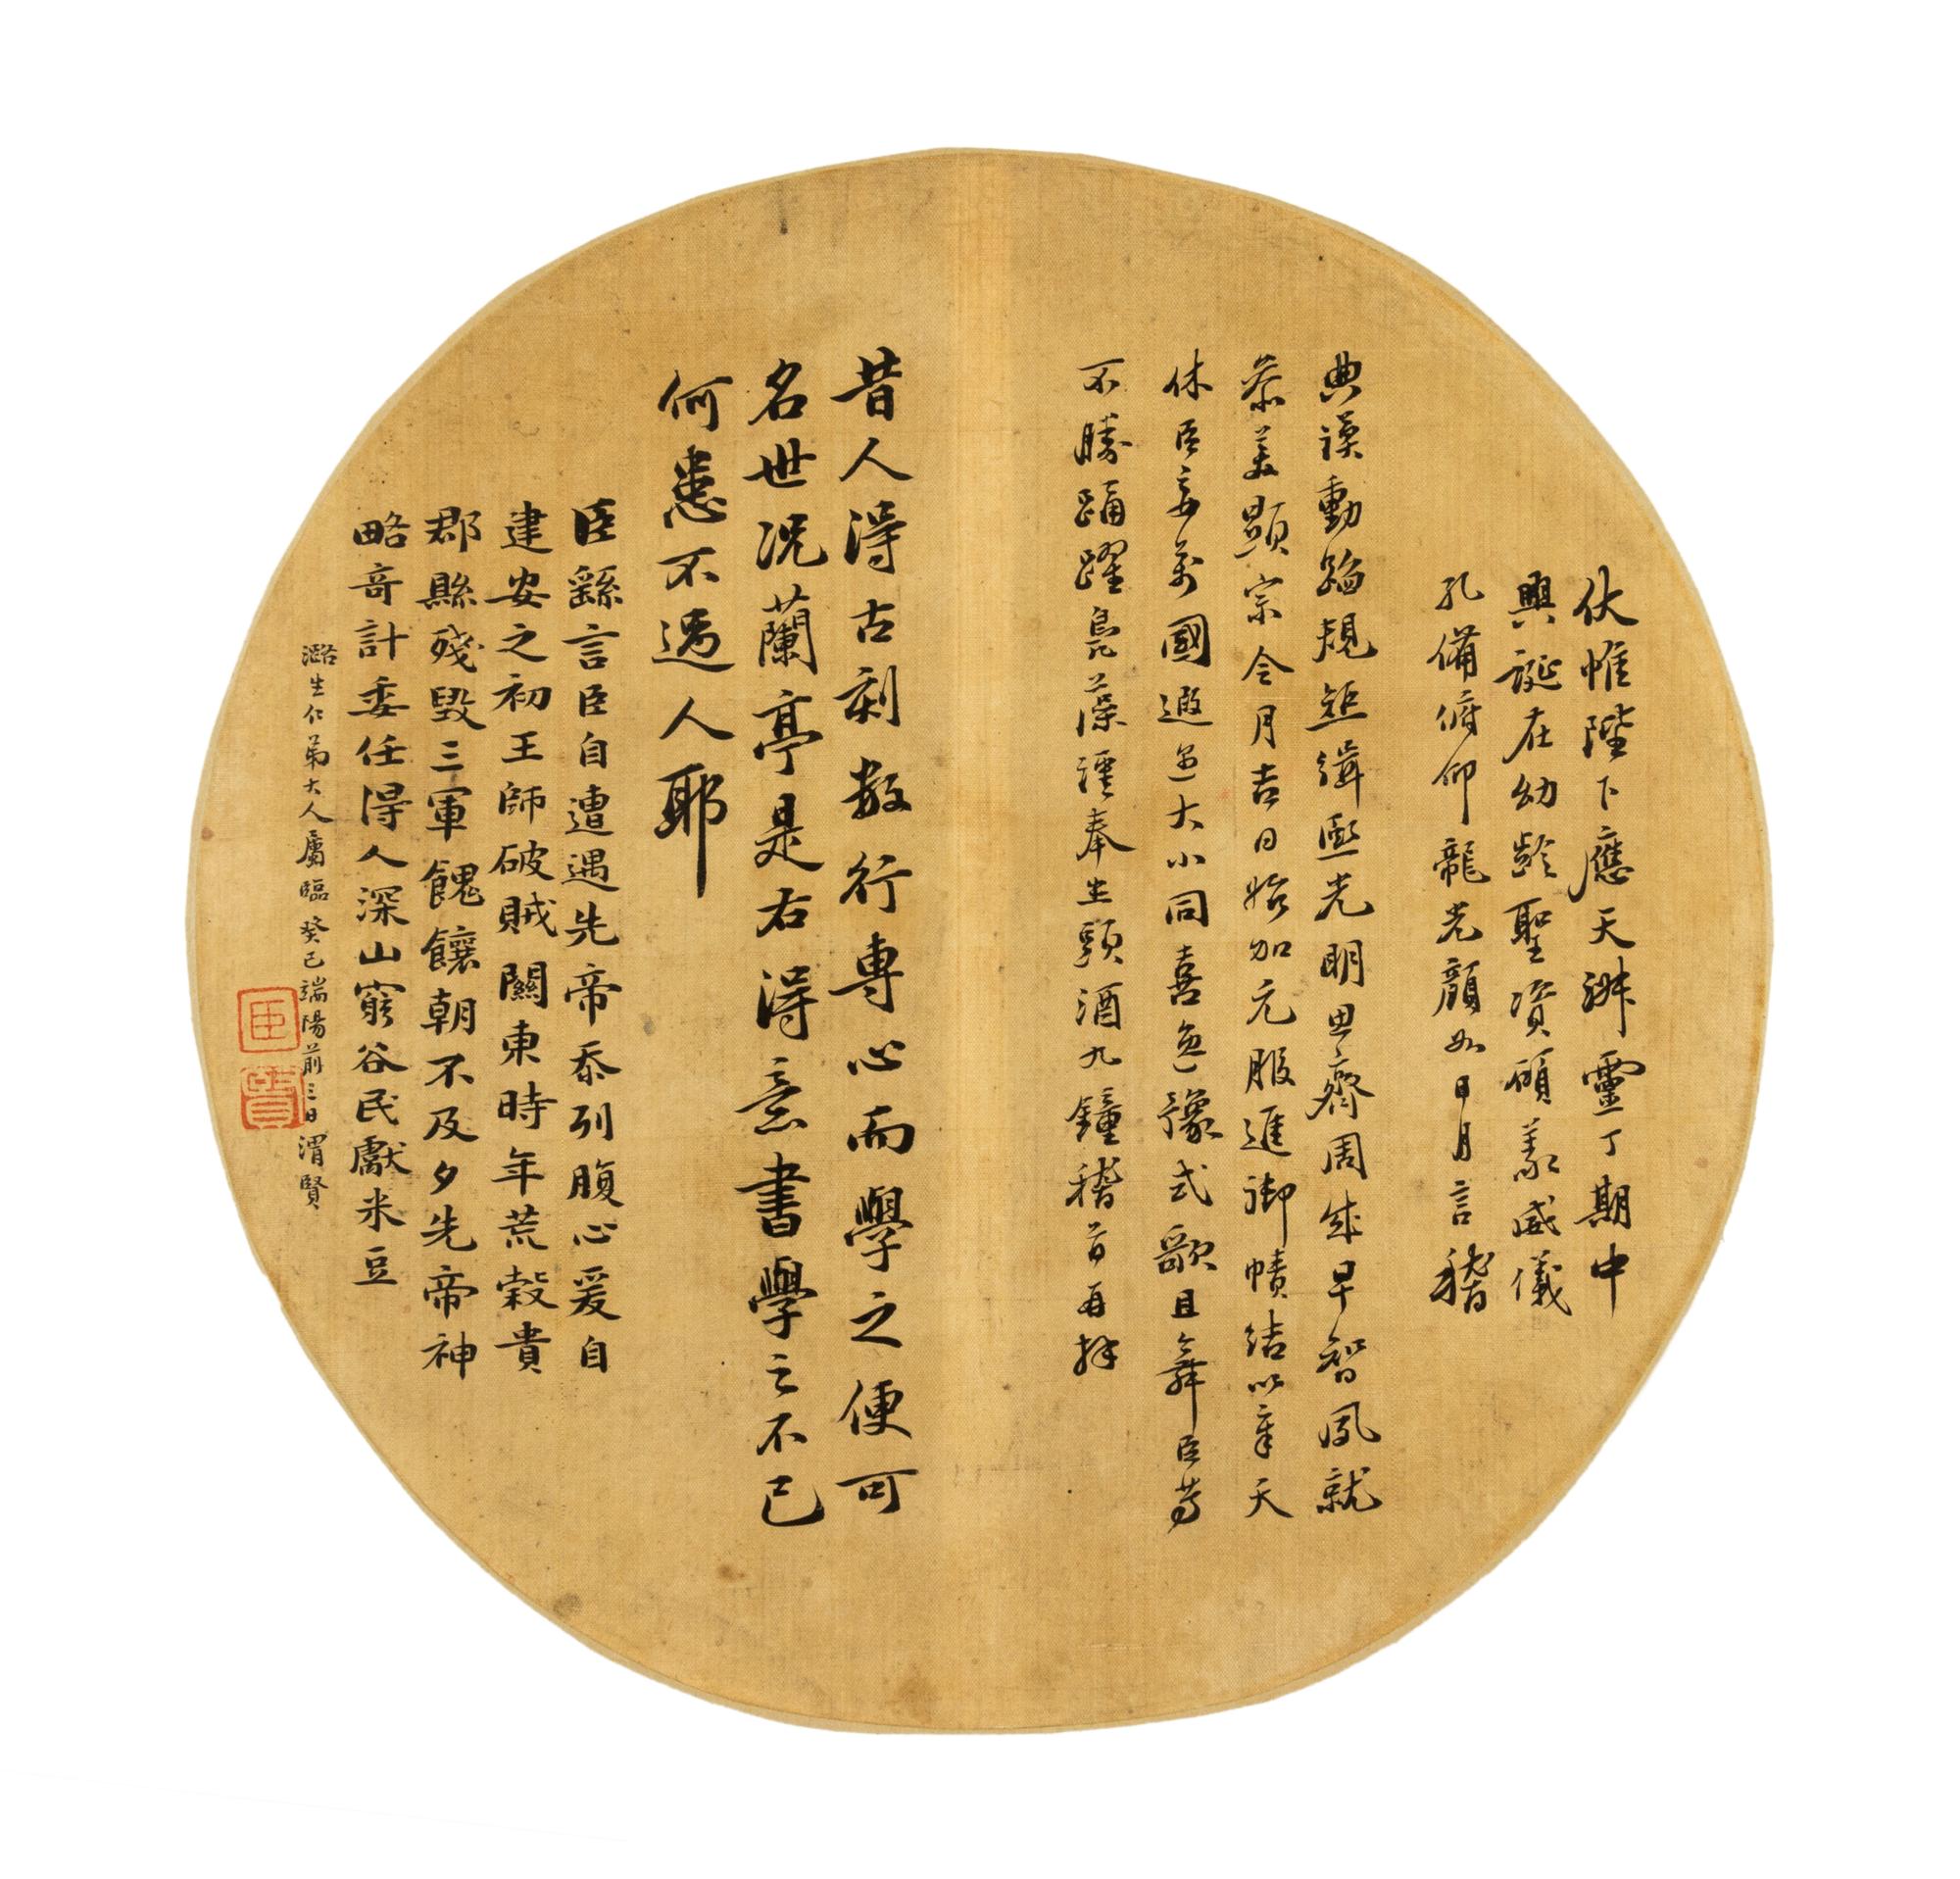 伏惟陛下應天淋靈丁期中
興誕在幼齡聖資碩義威儀
孔備俯仰龍光顏如日月言稽
典謨動蹈規矩緝熙光明思齊周成早智夙就
恭美顯宗令月吉日始加元服進御幘結以章天
休臣妾萬國遐邇大小同喜逸豫式歌且舞臣等
不勝踊躍鳧藻謹奉生頸酒九鐘稽首再拜
昔人得古刻數行專心而學之便可
名世況蘭亭是右得意書學之不已
何患不過人耶
臣繇言臣自遭遇先帝忝列腹心爰自
建安之初王師破賊關東時年荒穀貴
郡縣殘毀三軍餽饟朝不及夕先帝神
略奇計委任得人深山窮谷民獻米豆
潞生仁弟大人屬臨癸巳端陽前三日渭賢
臣